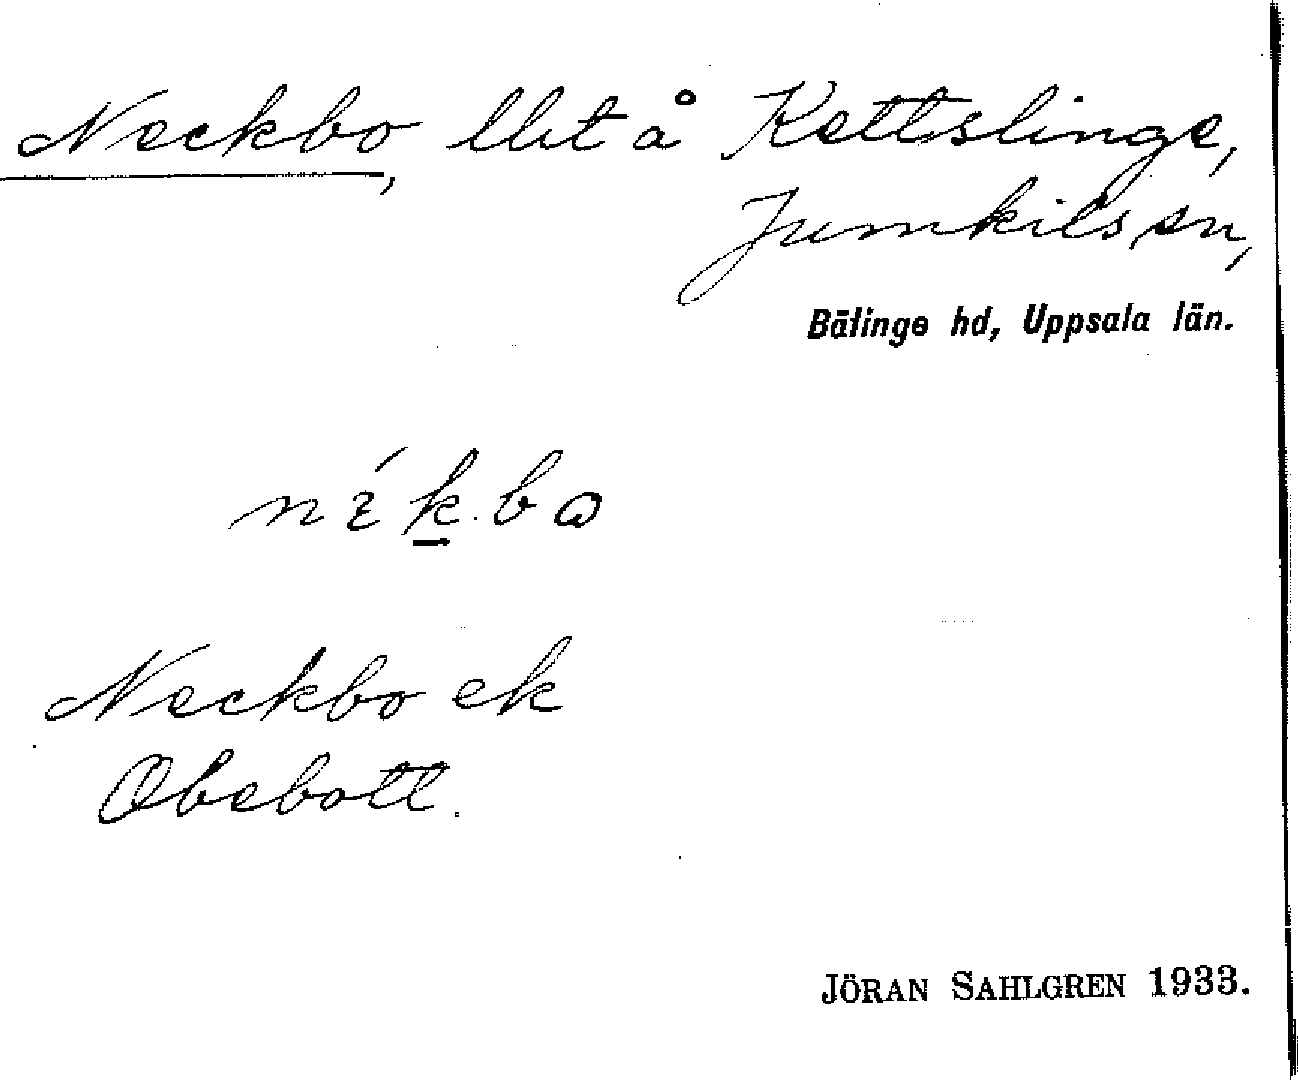 Neckbo, llit å Kettslinge,
Jumkils sn,
Bälinge hd, Uppsala län.
Neckbo ek
Obebott.
JÖRAN SAHLGREN 1933.